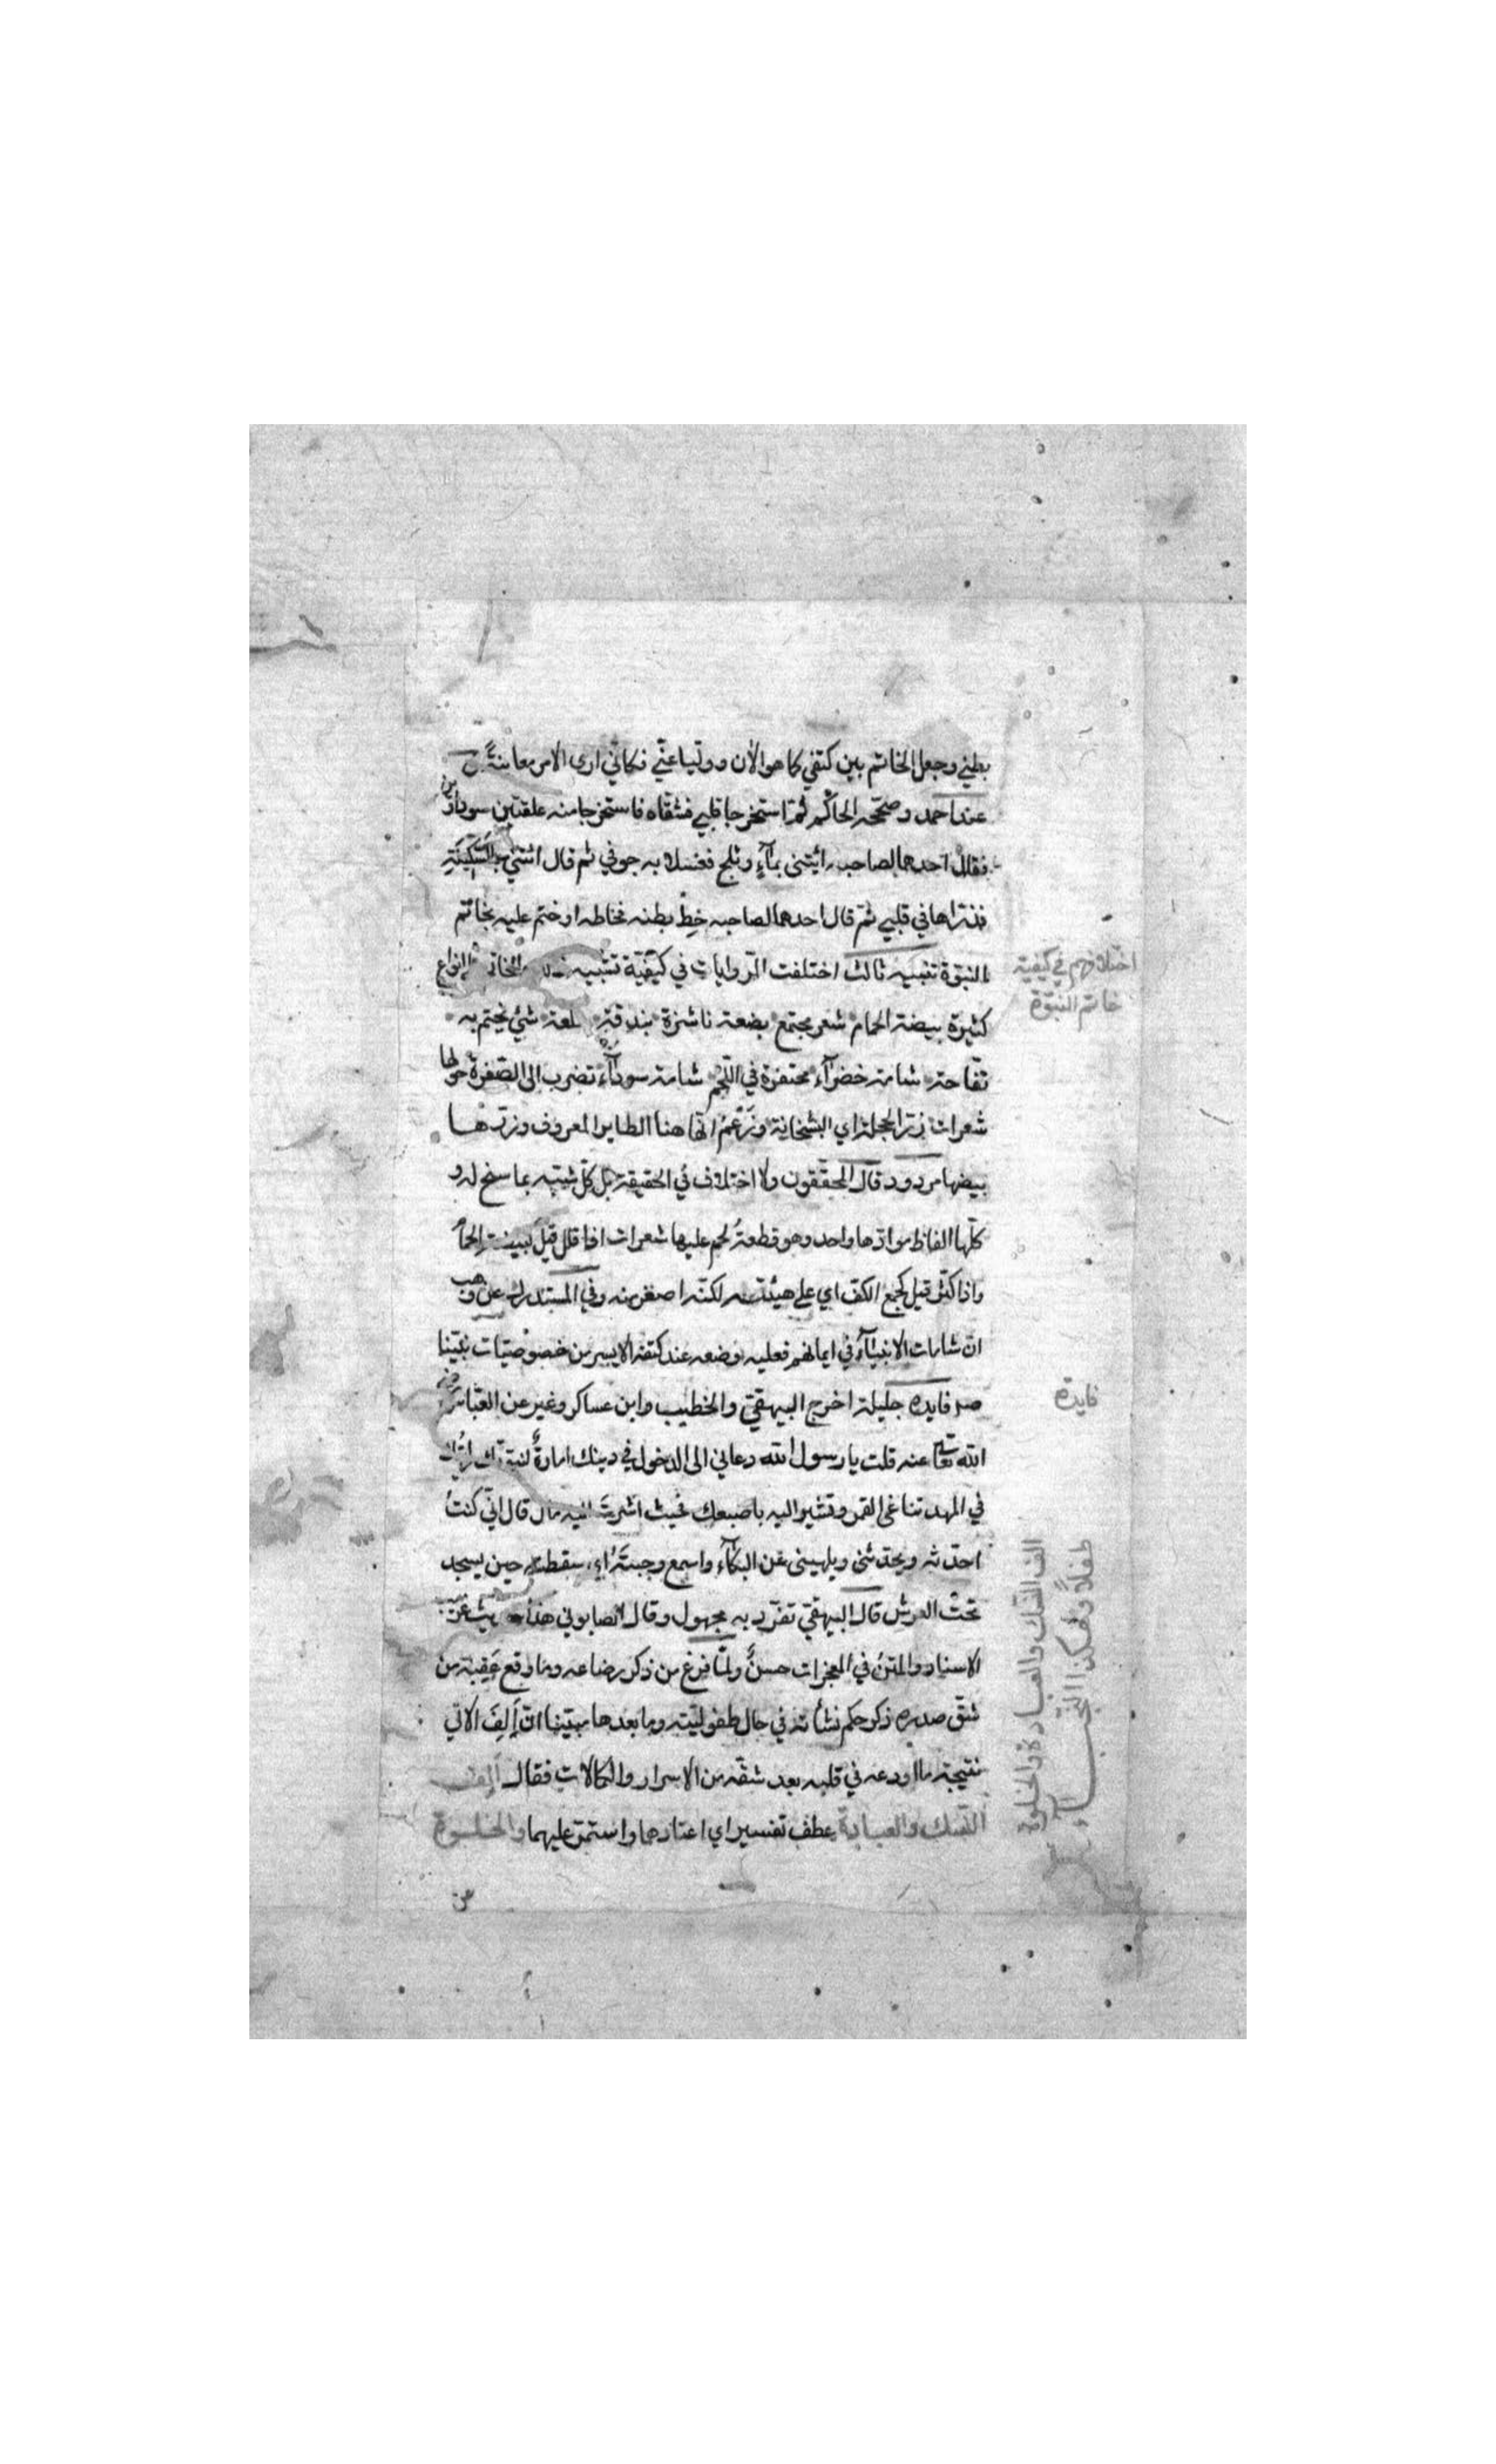 بطني وجعل الخاتم بين كتفي كما هو الآن ووليا عني فكاني ارى الامر معاينةً
عند احمد وصححه الحاكم ثم استخرجا قلبي فشقاه فاستخرجا منه علقتين سوداوين
فقال احدهما لصاحبه ائيتنى بمآءٍ وثلج فغسلا به جوفي ثم قال ائتني بالسَّكِينَةِ
فذراها في قلبي ثم قال احدهما لصاحبه خِط بطنه فخاطه اوختم عليه بخاتم
النبوة تنبيه ثالث اختلفت الروايات في كيفية تشبيه الخاتم الانواع
كثيرة بيضة الحمام شعر مجتمع بضعة ناشزة بندقة سلعة شيئ يختم به
تفاحة شامة خضرآء محتفرة في اللحم شامة سودآء تضرب الى الصفرة حولها
شعرات زر الحجلة اي البشخانة وزَعْمُ انها هنا الطاير المعروف وزرها
بيضها مردود قال المحققون ولا اختلاف في الحقيقة بل كل شبه بما سنح له و
كلها الفاظ موادها واحد وهو قطعةُ لحم عليها شعرات اذا قلل قيل كبيضة الحمام
واذا كثر قيل كجمع الكف اي على هيئته لكنه اصغر منه وفي المستدرك عن وهب
ان شارات الانبيآء في ايمانهم فعليه وضعه عند كتفه الايسر من خصوصيات نبينا
صم فايده جليلة اخرج البيهقي والخطيب وابن عساكر وغيره عن العباس رضي
الله تعالى عنه قلت يا رسول الله دعاني الى الدخول في دينك امارةٌ لنبوتك رايتك
في المهد تناغى القمر وتشير اليه باصبعك فحيث اشرت اليه مال قال اني كنتُ
احدثه ويحدثنى ويلهينى عن البكآء واسمع وجبتَهُ اي سقطته حين يسجد
تحت العرش قال البيهقي تفرد به مجهول وقال الصابوني هذا حديث غريب
الاسناد والمتنُ في المعجزات حسنٌ ولما فرغ من ذكر رضاعه وما وقع عَقِبَهُ من
شق صدره ذكر حكم نشأته في حال طفوليته وما بعدها مبينا ان اَلِفَ الآتي
نتيجة ما اودعه في قلبه بعد شقه من الاسرار والكمالات فقال اَلِفَ
النسك والعبادة عطف تفسير اي اعتادها واستمر عليهما والخلوة
عن
اختلافهم في كيفية
خاتم النبوة
فايدة
الف النسك والعبادة والخلوة
طفلاً وهكذا النجبآء